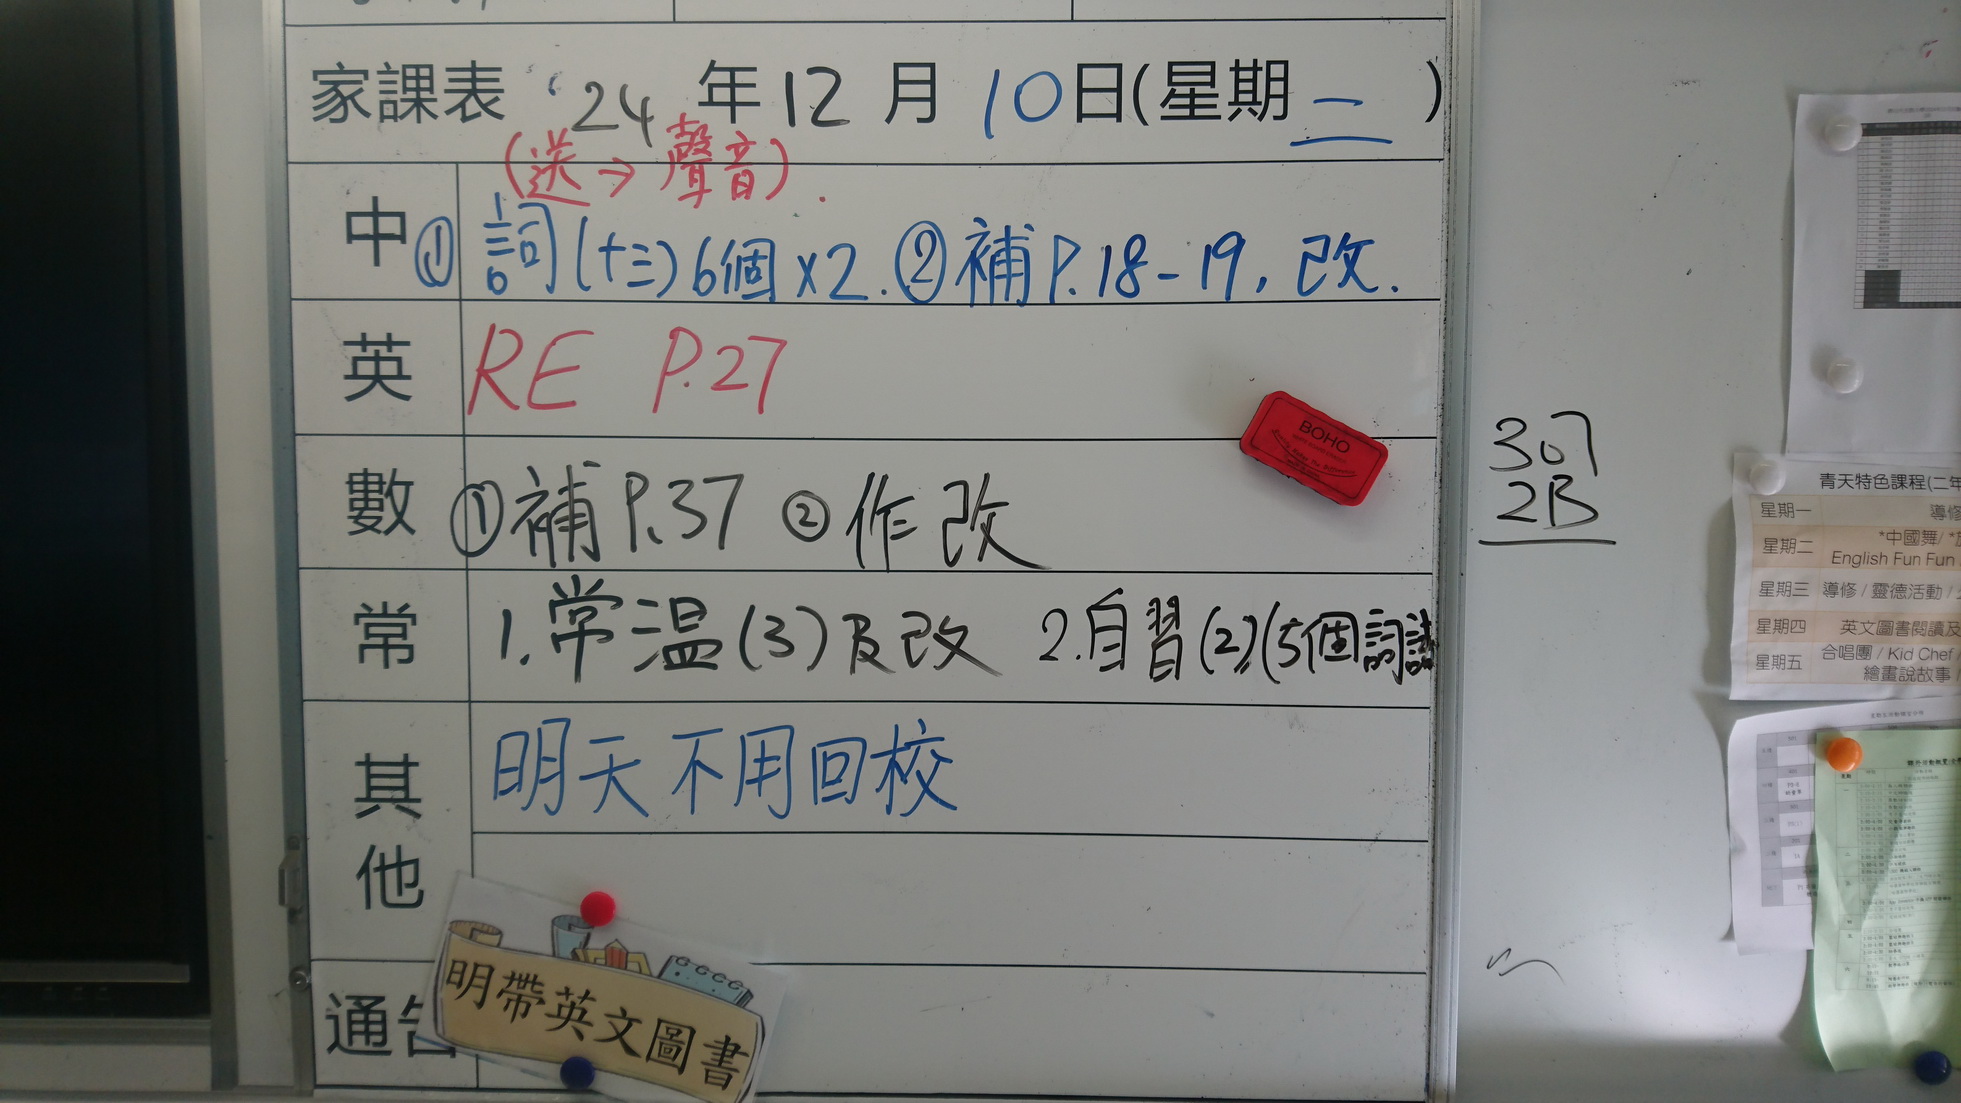 家課表 '24 年 12 月 10 日(星期二)
(送→聲音).
中 ① 詞(十三)6個x2. ② 補P.18-19, 改.
英 RE P.27
數 ① 補P.37 ② 作改
常 1. 常温(3)及改 2. 自習(2)(5個詞語
其他 明天不用回校
通告
明帶英文圖書
BOHO
307
2B
青天特色課程(二年
星期一 導修
星期二 *中國舞/ *
English Fun Fun
星期三 導修 / 靈德活動 /
星期四 英文圖書閱讀及
星期五 合唱團 / Kid Chef /
繪畫說故事 /